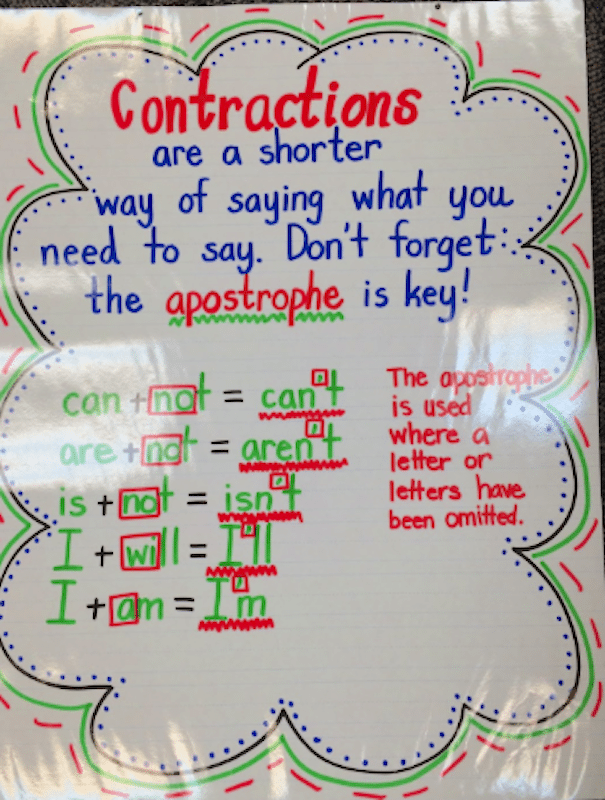 Contractions
are a shorter
way of saying what you
need to say. Don't forget
the apostrophe is key!
can + not = can't
are + not = aren't
is + not = isn't
I + will = I'll
I + am = I'm
The apostrophe
is used
where a
letter or
letters have
been omitted.